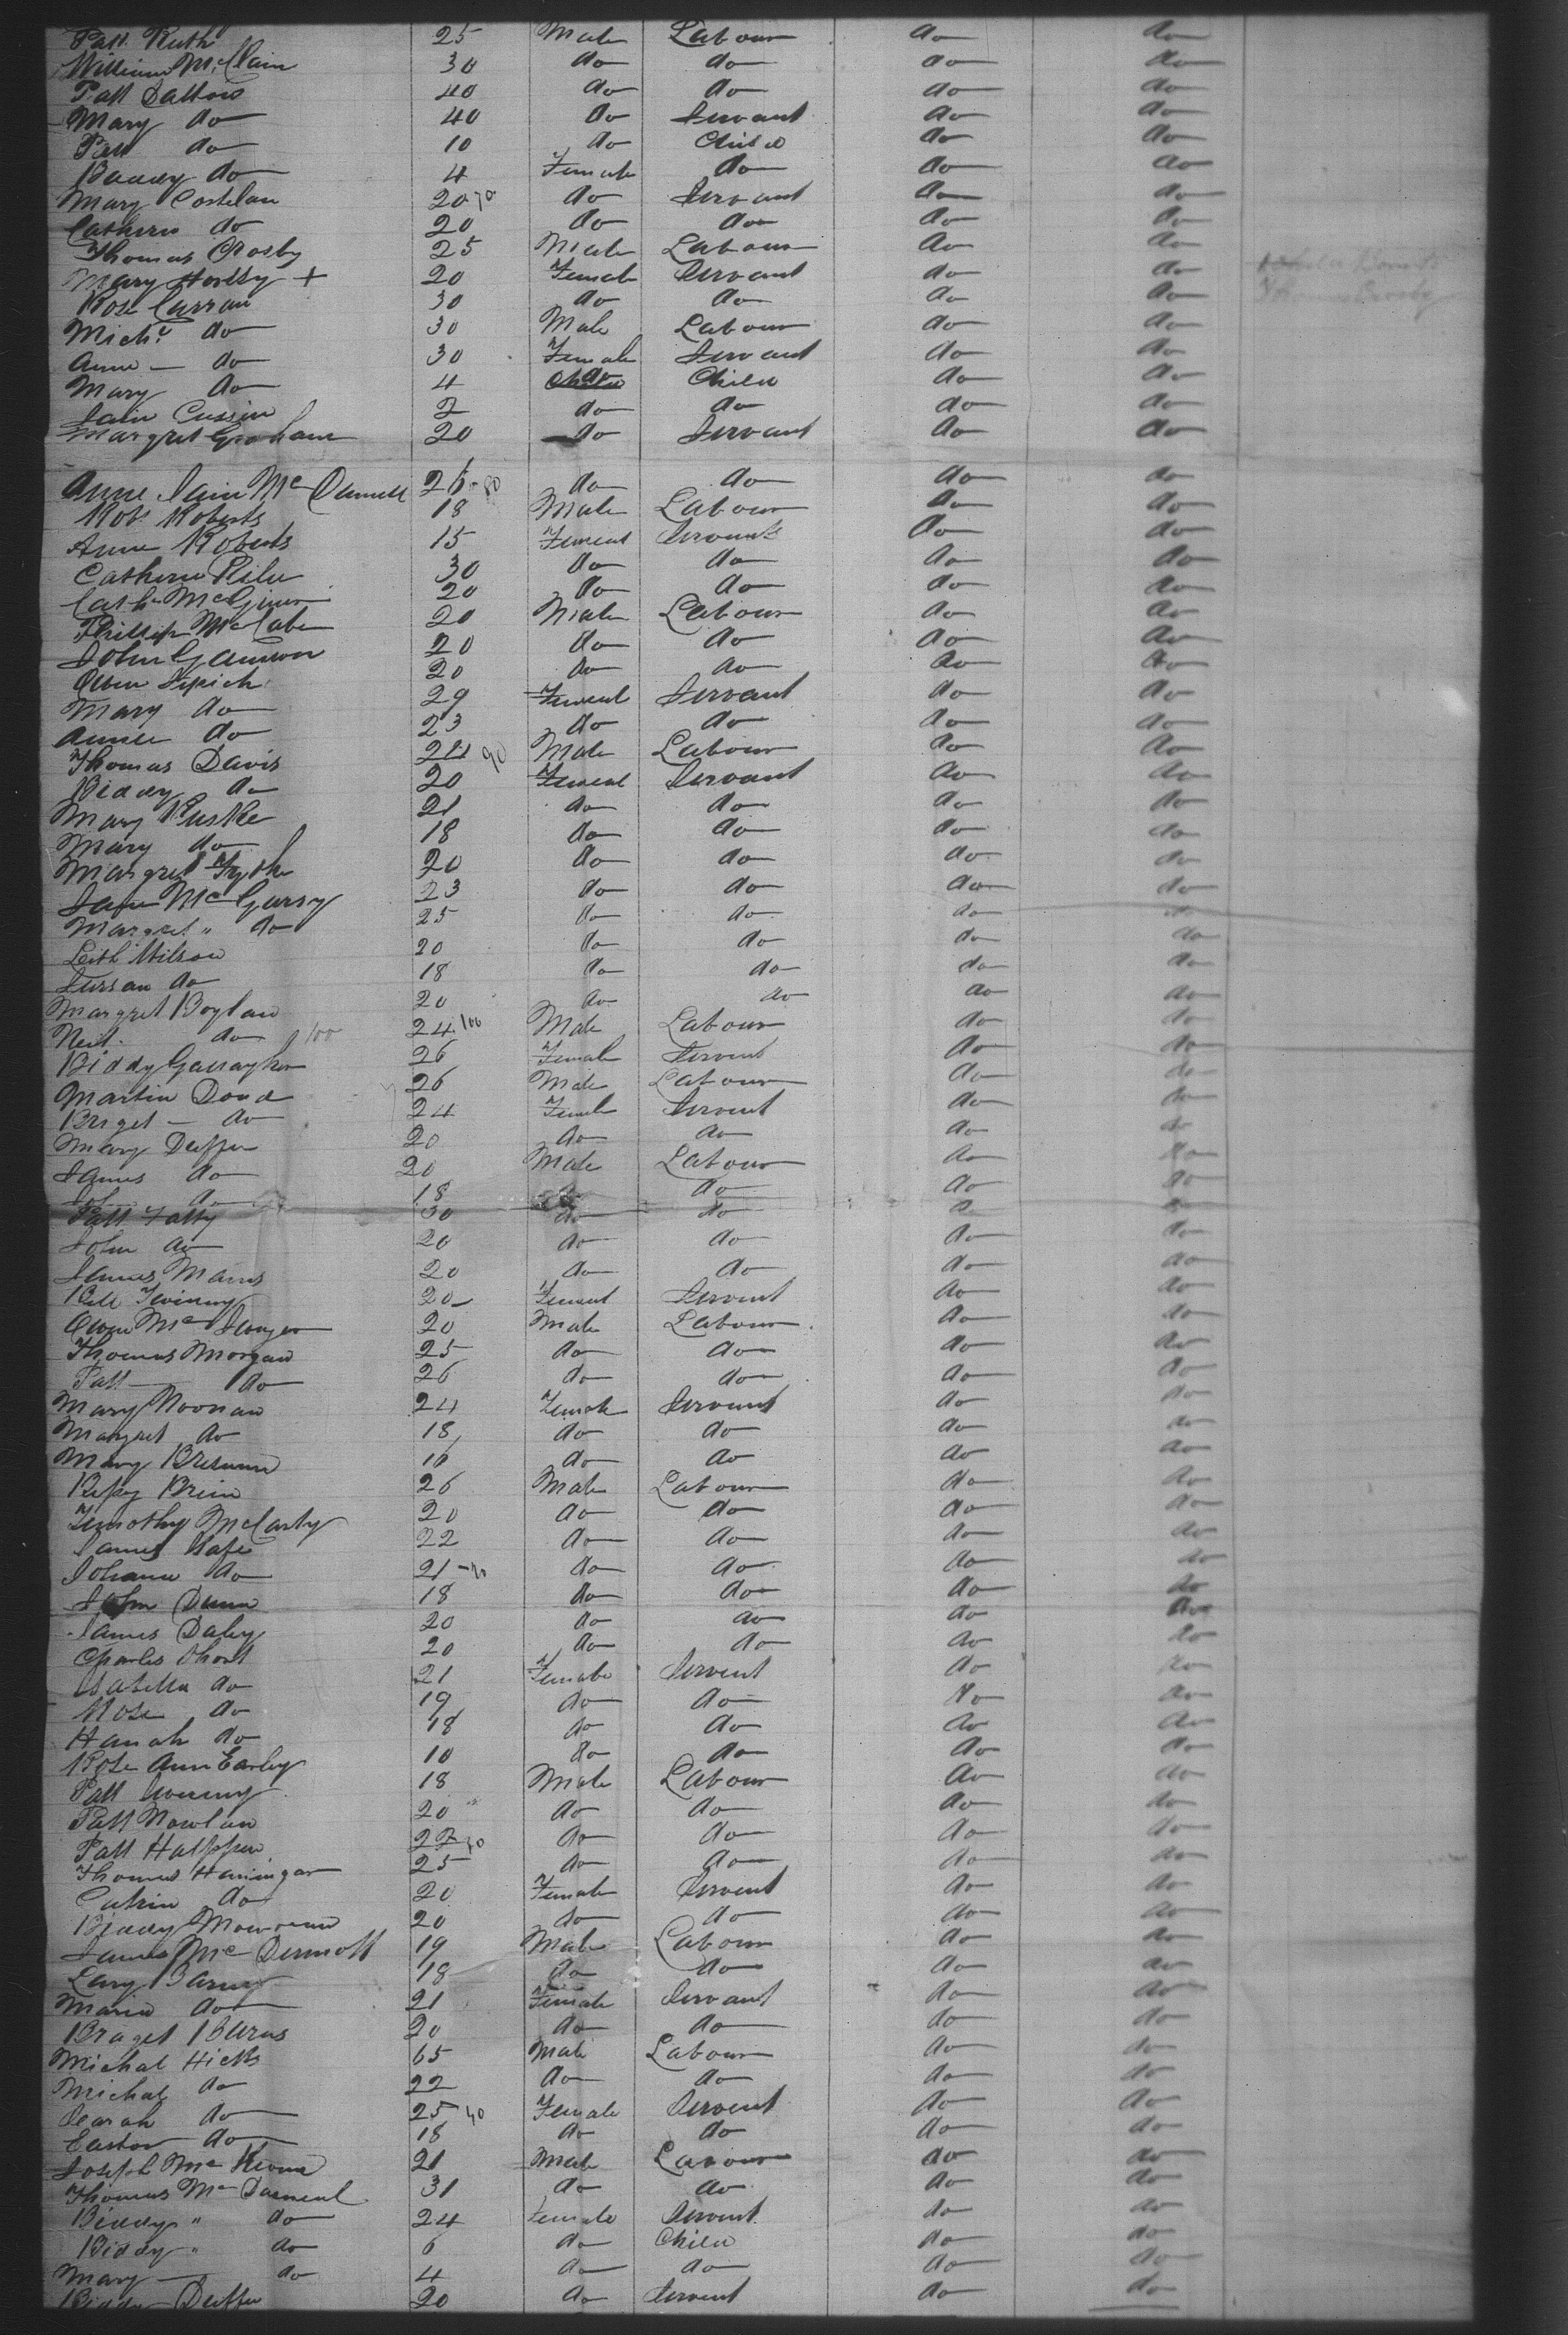 Patt Ruth 25 Male Labour do do
William McClain 30 do do do do
Patt Dalton 40 do do do do
Mary do 40 do Servant do do
Patt do 10 do Child do do
Biddy do 4 Female do do do
Mary Costelan 20 70 do Servant do do
Cathern do 20 do do do do
Thomas Crosby 25 Male Labour do do
Mary + 20 Female Servant do do
Rose Curran 30 do do do do
Michl do 30 Male Labour do do
Anne — do 30 Female Servant do do
Mary do 4 do Child do do
Jain Cussin 2 do do do do
Margret Graham 20 do Servant do do
Anne Jain Mc 26 80 do do do do
Robt Roberts 18 Male Labour do do
Anne Roberts 15 Femeal Servant do do
Cathern Rile 30 do do do do
Cath McGinn 20 do do do do
Phillip McCabe 20 Male Labour do do
John 20 do do do do
Owen 20 do do do do
Mary do 29 Femeal Servant do do
Annie do 23 do do do do
Thomas Davis 24 90 Male Labour do do
Biddy do 20 Femeal Servant do do
Mary Ruske 21 do do do do
Mary do 18 do do do do
Margret 20 do do do do
Jain Mc Garry 23 do do do do
Margret " do 25 do do do do
Wilson 20 do do do do
Sussan do 18 do do do do
Margret Boylan 20 do do do do
Neil do 100 24 100 Male Labour do do
Biddy Gallagher 26 Female Servent do do
Martin Doud 26 Male Labour do do
Briget — do 24 Female Servent do do
Mary Duffen 20 do do do do
James do 20 Male Labour do do
John do 18 do do do do
Patt Fally 30 do do do do
John do 20 do do do do
James Manus 20 do do do do
Bill 20 Femeal Servent do do
Owen Mc 20 Male Labour do do
Thomas Morgan 25 do do do do
Patt — do 26 do do do do
Mary Noonan 24 Female Servant do do
Margret do 18 do do do do
Mary 16 do do do do
Brien 26 Male Labour do do
Timothy McCarty 20 do do do do
James 22 do do do do
Johanne do 21 do do do do
John Dunn 18 do do do do
James Daley 20 do do do do
Charles Short 20 do do do do
Isabella do 21 Female Servent do do
Rose do 19 do do do do
Hanah do 18 do do do do
Rose Ann Earley 10 do do do do
Patt 18 Male Labour do do
Patt Nowlan 20 do do do do
Patt Halfpen 22 30 do do do do
Thomas Haningan 25 do do do do
Catrin do 20 Female Servent do do
Biddy 20 do do do do
James Mc Dermott 19 Male Labour do do
Lary 18 do do do do
Maria do 21 Female Servant do do
Braget Burns 20 do do do do
Michal Hicks 65 Male Labour do do
Michal do 22 do do do do
Searah do 25 40 Female Servent do do
Easter do 18 do do do do
Joseph Mc 21 Male Labour do do
Thomas Mc 31 do do do do
Biddy " do 24 Female Servent do do
Biddy " do 6 do Child do do
Mary — do 4 do do do do
Biddy Duffen 20 do Servent do do